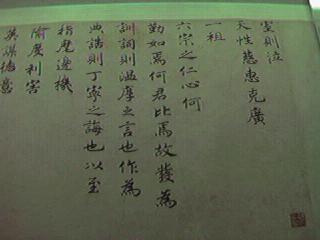 室則泣
天性慈惠克廣
一祖
六宗之仁心何
勤如焉何君比焉故發為
訓詞則溫厚之言也作為
典誥則丁寧之誨也以至
指麾邊機
利害